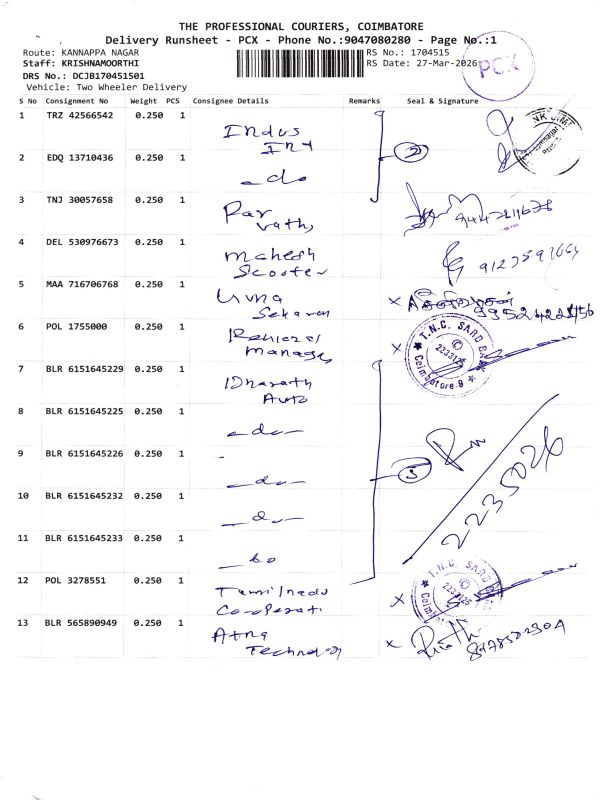 THE PROFESSIONAL COURIERS, COIMBATORE
Delivery Runsheet - PCX - Phone No.:9047080280 - Page No.:1
Route: KANNAPPA NAGAR RS No.: 1704515
Staff: KRISHNAMOORTHI RS Date: 27-Mar-2026
PCX
DRS No.: DCJB170451501
Vehicle: Two Wheeler Delivery
S No Consignment No Weight PCS Consignee Details Remarks Seal & Signature
1 TRZ 42566542 0.250 1 Indus
Ind
2 EDQ 13710436 0.250 1 -do 2
3 TNJ 30057658 0.250 1 Par
vathy
4 DEL 530976673 0.250 1 Mahesh
Scooter
5 MAA 716706768 0.250 1 Sekaran
6 POL 1755000 0.250 1 Manager
T.N.C. SARD BANK
Coimbatore-9
7 BLR 6151645229 0.250 1 Bharath
Auto
8 BLR 6151645225 0.250 1 -do-
9 BLR 6151645226 0.250 1 -do- 5
10 BLR 6151645232 0.250 1 -do-
2235026
11 BLR 6151645233 0.250 1 -do
12 POL 3278551 0.250 1 Tamilnadu
Co-operati
T.N.C. SARD
13 BLR 565890949 0.250 1 Atna
Technology